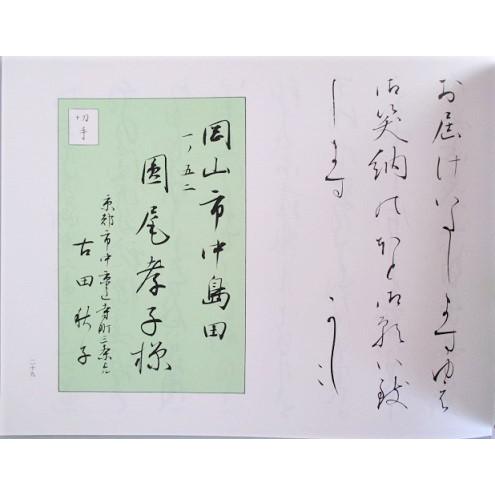 お届けいたしますゆゑ
御笑納のほど御願い致
します
かしこ
切手
岡山市中島田
一ノ五二
園尾孝子様
京都市中京区寺町三条上
古田秋子
二十九